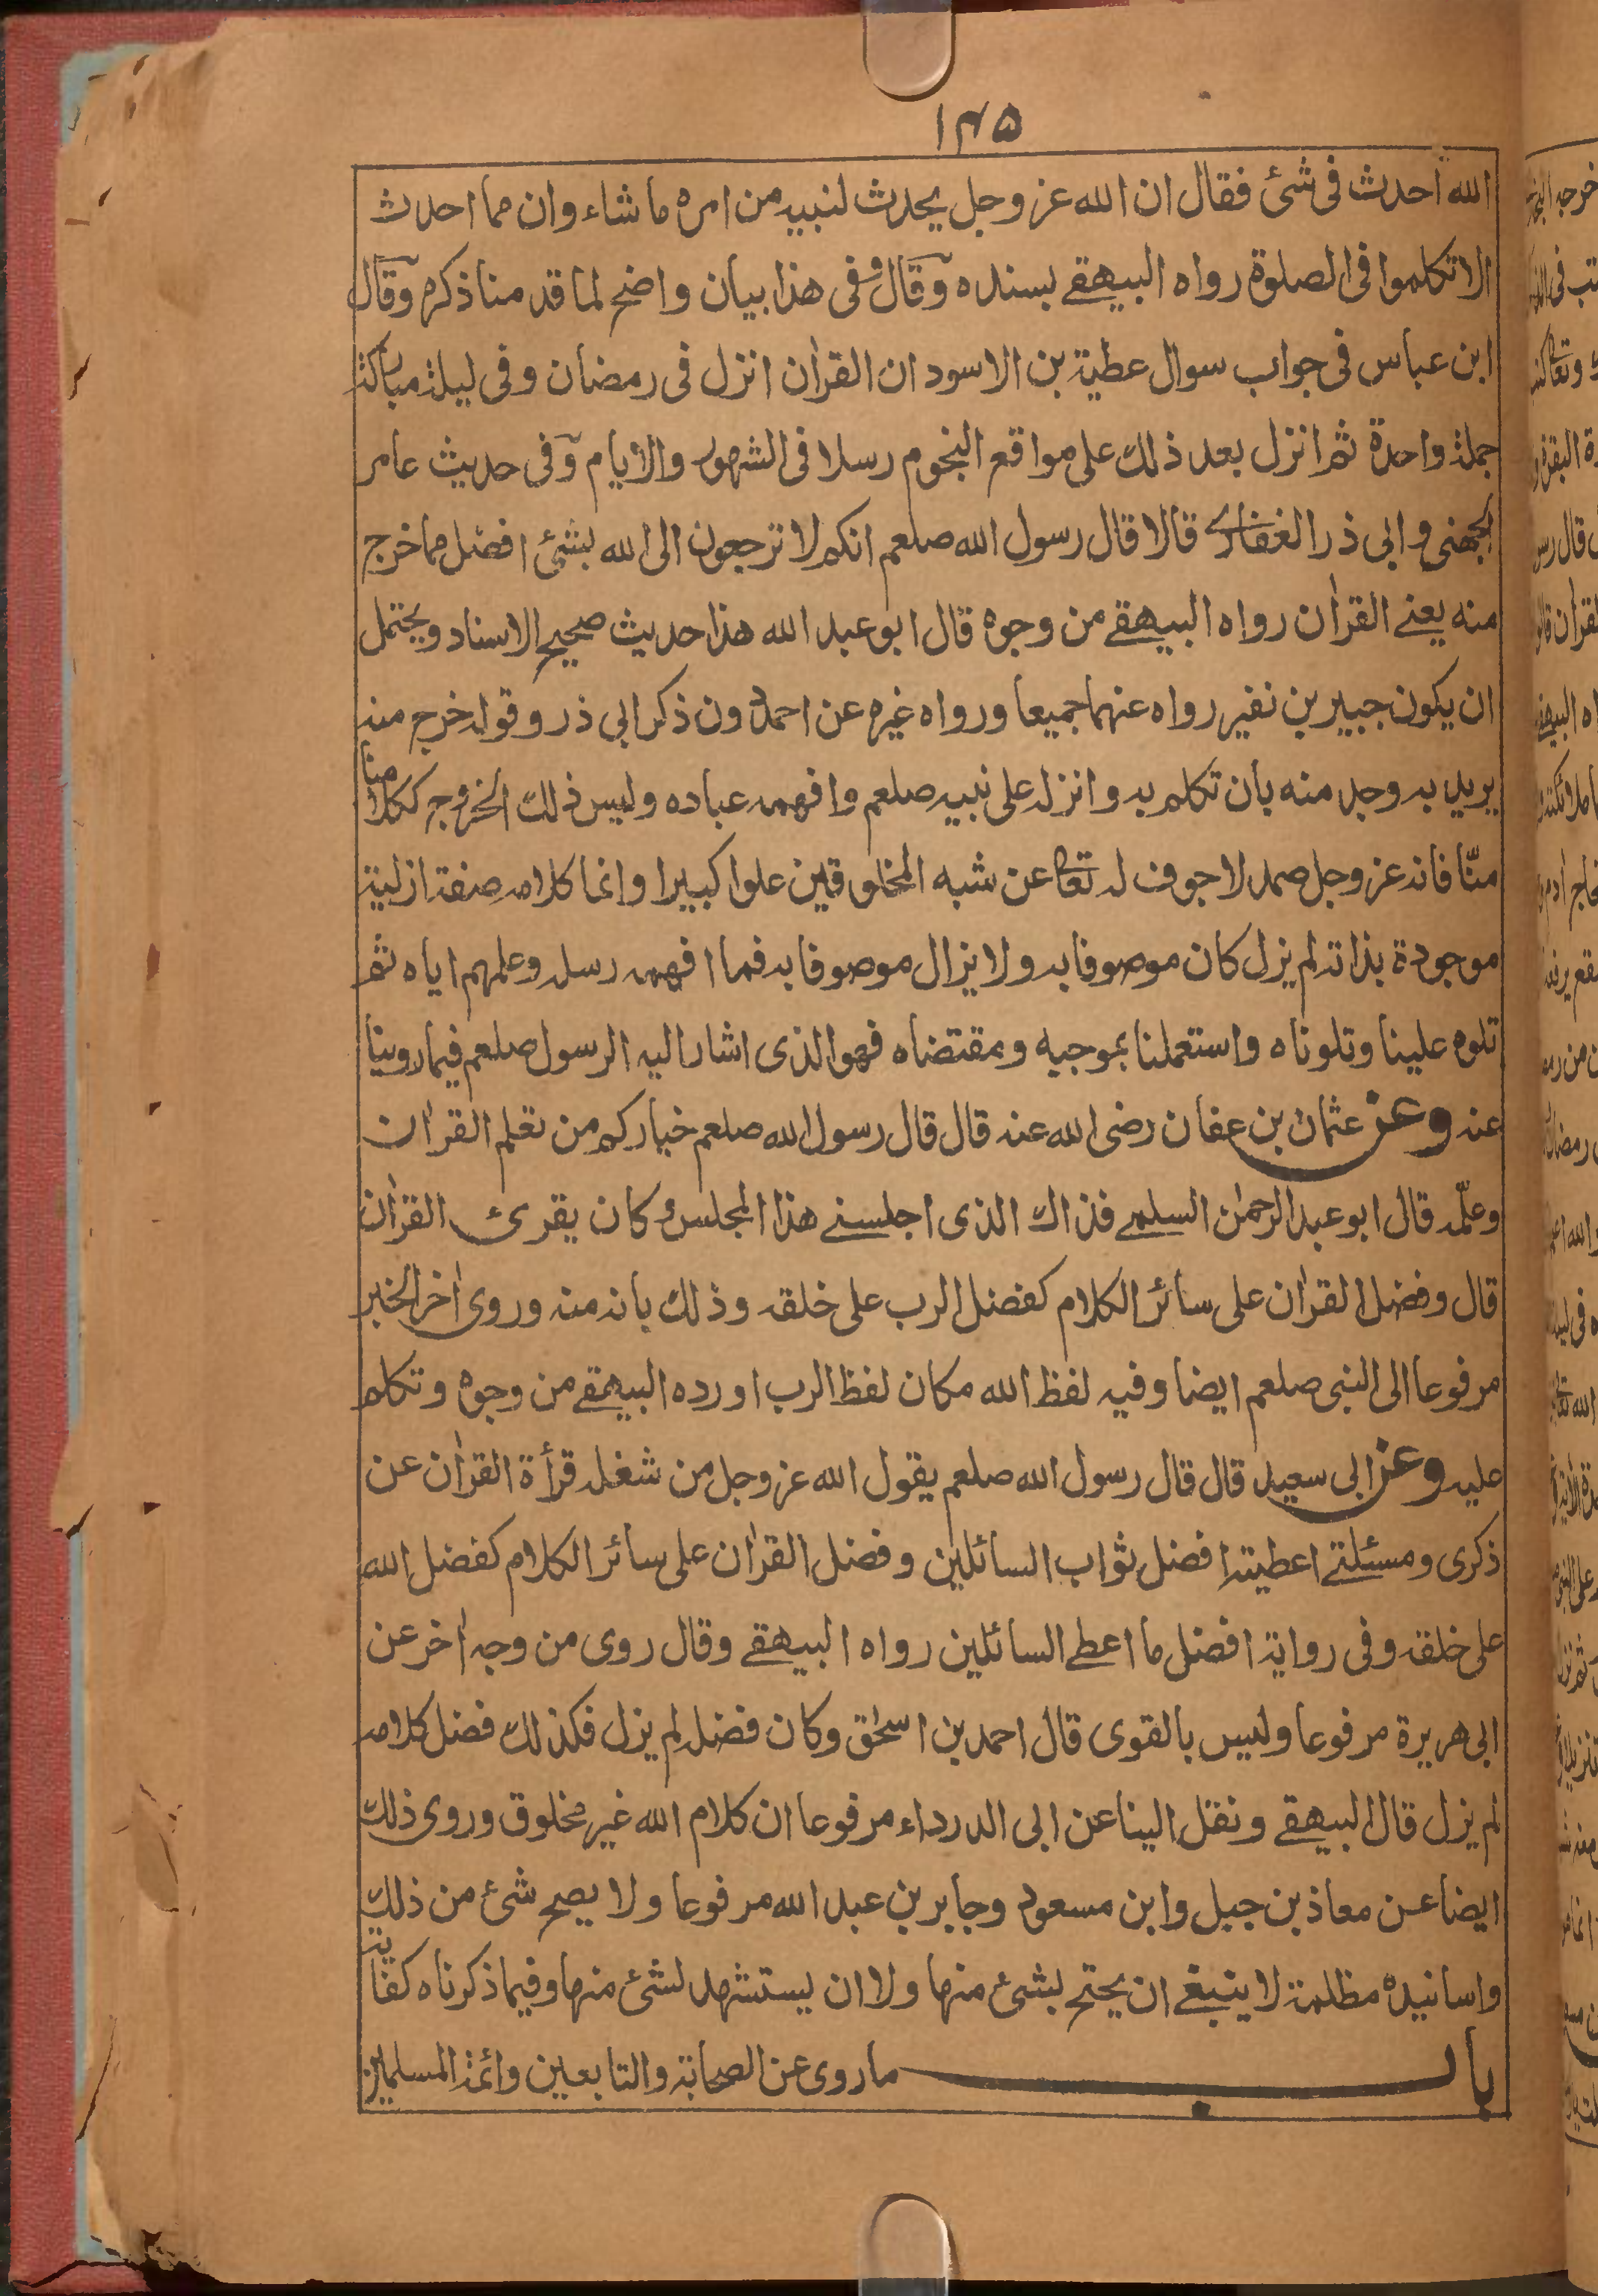 ١٣٥
الله احدث فى شئ فقال ان الله عز وجل يحدث لنبيه من امره ما شاء وان مما احدث
الا تكلموا فى الصلوة رواه البيهقے بسنده وقال وفى هذا بيان واضح لما قدمنا ذكره وقال
ابن عباس فى جواب سوال عطية بن الاسود ان القراٰن انزل فى رمضان وفى ليلة مباركة
جملة واحدة ثم انزل بعد ذلك على مواقع النجوم رسلا فى الشهور والايام وفى حديث عامر
الجهنى وابى ذر الغفارے قالا قال رسول الله صلعم انكم لا ترجعون الى الله بشئ افضل مما خرج
منه يعنے القراٰن رواه البيهقے من وجوه قال ابو عبد الله هذا حديث صحيح الاسناد ويحتمل
ان يكون جبير بن نفير رواه عنهما جميعا ورواه غيره عن احمد دون ذكر ابى ذر وقوله خرج منه
يريد به وجد منه بان تكلم به وانزله على نبيه صلعم وافهمه عباده وليس ذلك الخروج ككلامنا
منّا فانه عز وجل صمد لا جوف له تعالى عن شبه المخلوقين علوا كبيرا وانما كلامه صفة ازلية
موجودة بذاته لم يزل كان موصوفا به ولا يزال موصوفا به فما افهمه رسله وعلمهم اياه ثم
تلوه علينا وتلوناه واستعملنا بموجبه ومقتضاه فهو الذى اشار اليه الرسول صلعم فيما روينا
عنه وعن عثمان بن عفان رضى الله عنه قال قال رسول الله صلعم خياركم من تعلم القراٰن
وعلّمه قال ابو عبد الرحمٰن السلمے فذاك الذى اجلسنے هذا المجلس وكان يقرئ القراٰن
قال وفضل القراٰن على سائر الكلام كفضل الرب على خلقه وذلك بانه منه وروى اٰخر الخبر
مرفوعا الى النبى صلعم ايضا وفيه لفظ الله مكان لفظ الرب اورده البيهقے من وجوه وتكلم
عليه وعن ابى سعيد قال قال رسول الله صلعم يقول الله عز وجل من شغله قرأة القراٰن عن
ذكرى ومسئلتے اعطيته افضل ثواب السائلين وفضل القراٰن على سائر الكلام كفضل الله
على خلقه وفى رواية افضل ما اعطے السائلين رواه البيهقے وقال روى من وجه اٰخر عن
ابى هريرة مرفوعا وليس بالقوى قال احمد بن اسحٰق وكان فضله لم يزل فكذلك فضل كلامه
لم يزل قال البيهقے ونقل الينا عن ابى الدرداء مرفوعا ان كلام الله غير مخلوق وروى ذلك
ايضا عن معاذ بن جبل وابن مسعود وجابر بن عبد الله مرفوعا ولا يصح شئ من ذلك
واسانيده مظلمة لا ينبغے ان يحتج بشئ منها ولا ان يستشهد لشئ منها وفيما ذكرناه كفاية
باب ما روى عن الصحابة والتابعين وائمة المسلمين